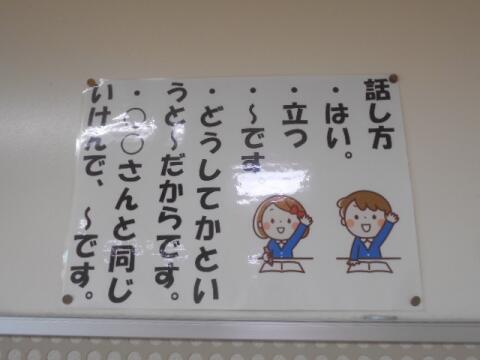 話し方
・はい。
・立つ
・～です。
・どうしてかとい
うと～だからです。
・○○さんと同じ
いけんで、～です。